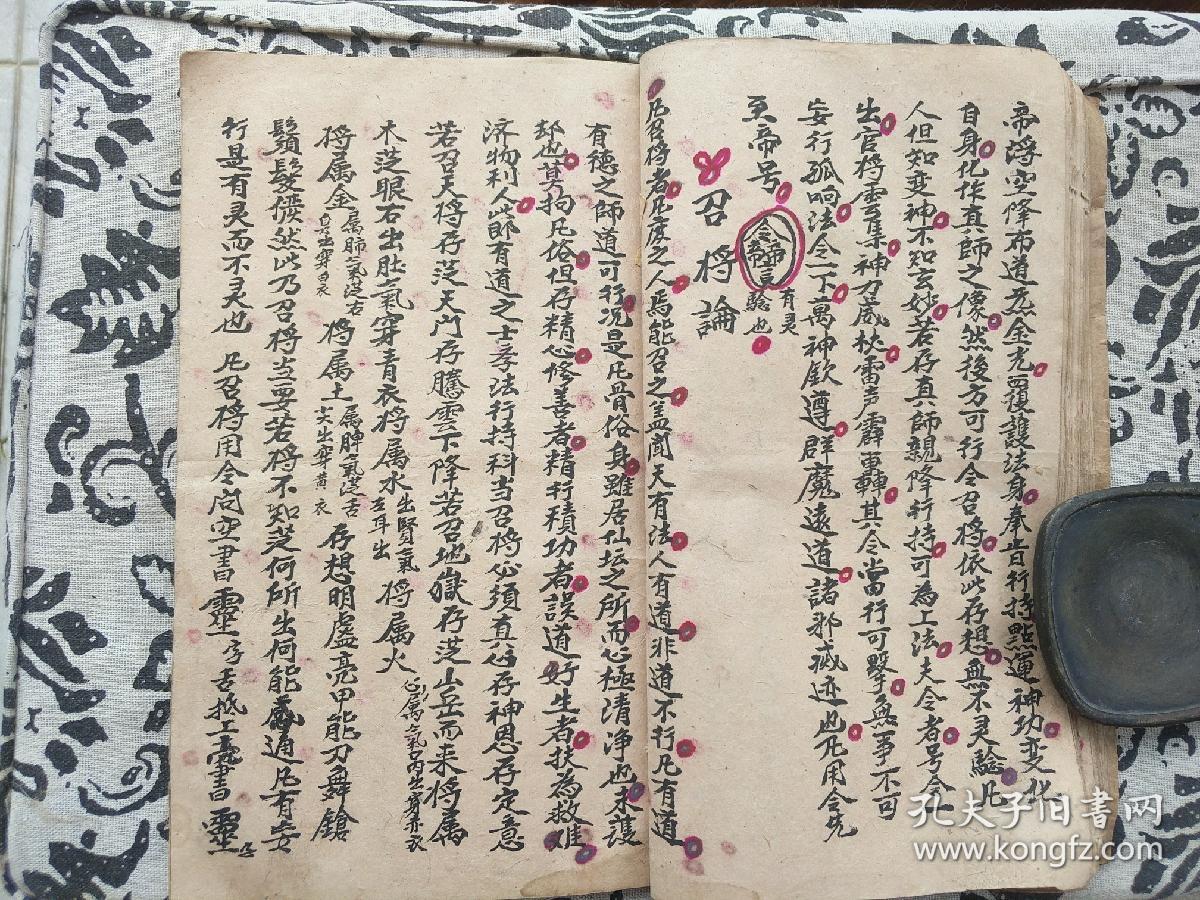 帝浮空降布道炁金光覆護法身奉旨行持默運神功变化
自身化作真師之像然後方可行令召将依此存想無不灵驗凡
人但知变神不知玄妙若存真師親降行持可為工法夫令者号令
出官将雲集神刀歳杖雷声霹轟其令當行可擊無事不可
妄行孤响法令一下萬神欽遵群魔遠道諸邪灭迹也凡用令先
至帝号
有灵
驗也
召将論
凡召将者凡庶之人焉能召之盖闻天有法人有道非道不行凡有道
有德之師道可行况是凡骨俗身雖居仙坛之所而心極清净也未護
却也其拘凡俗但存精心修善者精行積功者誤道好生者扶為救难
济物利人此即有道之士奉法行持科当召将必須真心存神思存定意
若召天将存从天门存騰雲下降若召地獄存从山丘而来将属
木从眼右出肚氣穿青衣将属水出腎氣
左耳出
将属火
心属氣丙出穿赤衣
将属金属肺氣从右
鼻出穿白衣
将属土属脾氣从舌
尖出穿黄衣
存想明盧亮甲能刀舞鎗
鬚髮儼然此乃召将主要若将不知从何所出何能感通凡有妄
行豈有灵而不灵也凡召将用令向空書靈字舌抵上亦書靈字
孔夫子旧書网
www.kongfz.com